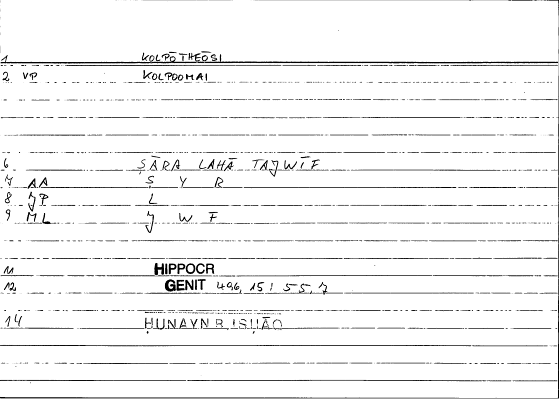 1 KOLPŌTHEŌSI
2 VP KOLPOOMAI
6 ṢĀRA LAHĀ TAJWĪF
7 AA Ṣ Y R
8 JP L
9 ML J W F
11 HIPPOCR
12 GENIT 496, 15 / 55, 7
14 ḤUNAYN B. ISḤĀQ